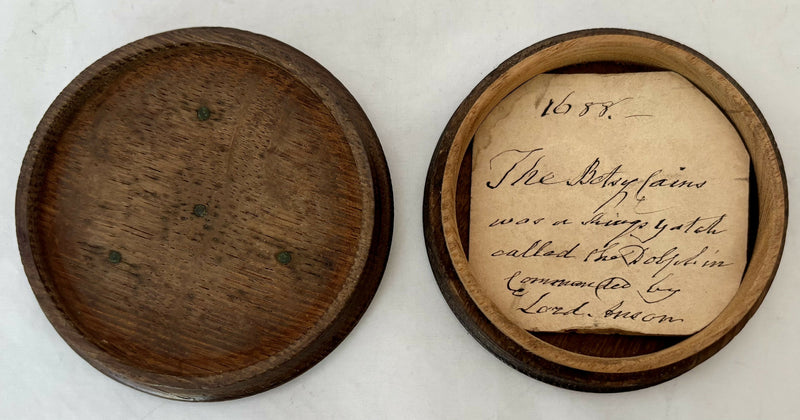 1688.—
The Betsy Cains
was a Kings yatch
called the Dolphin
Commanded by
Lord. Anson